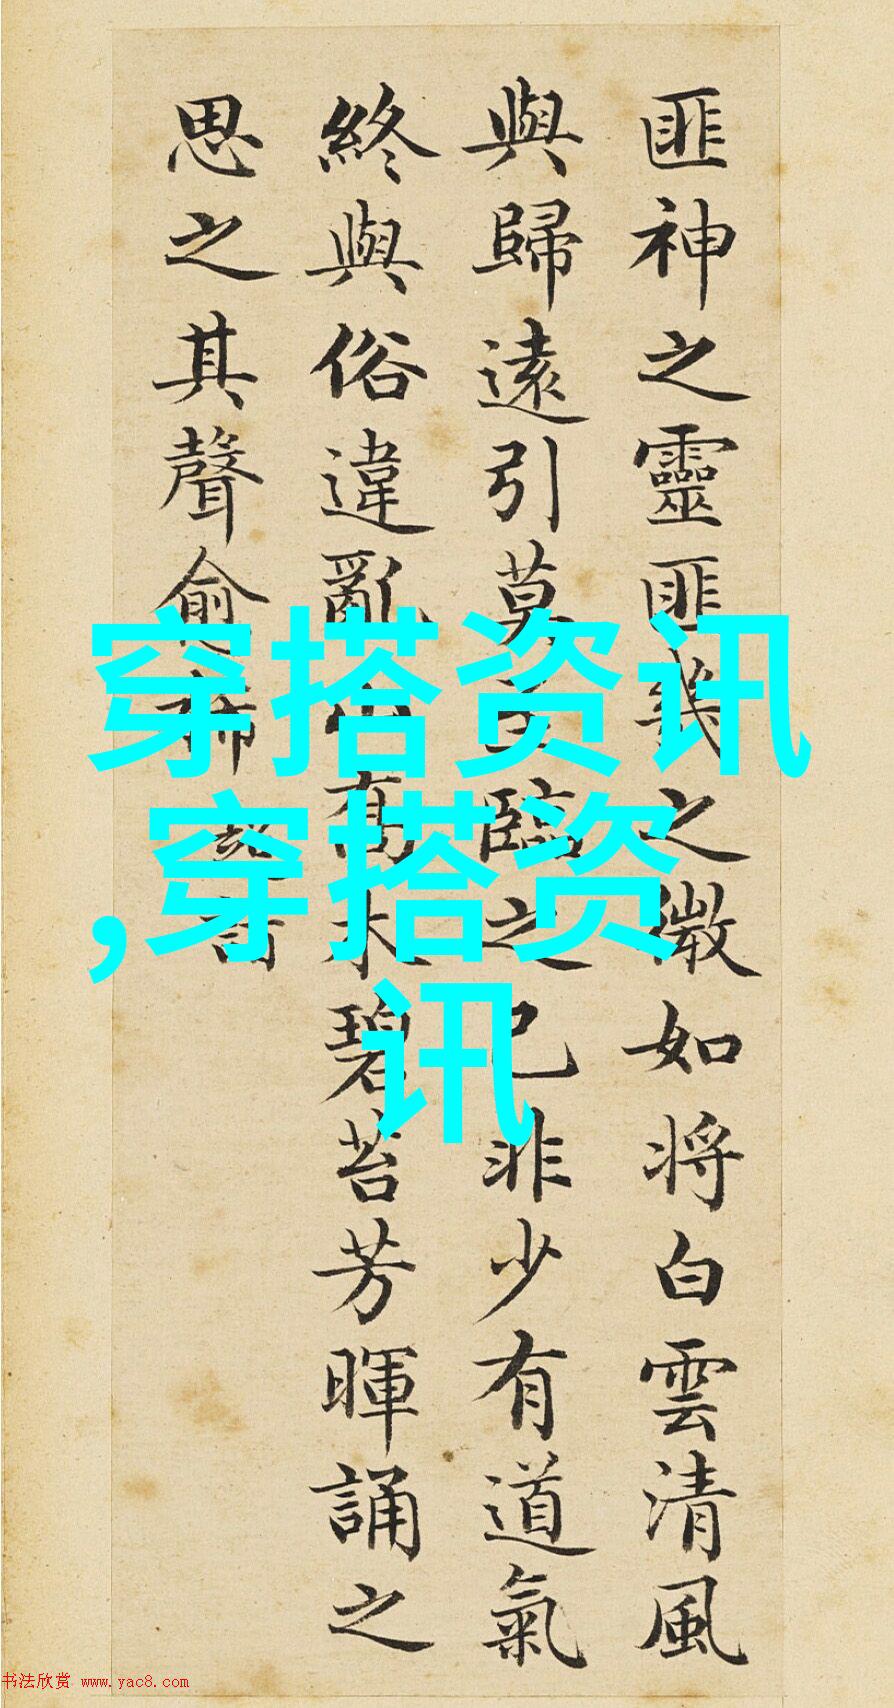 匪神之靈匪幾之微如将白雲清風
與歸遠引莫至臨之已非少有道氣
終與俗違亂山木碧苔芳暉誦之
思之其聲希
穿搭资讯
,穿搭资
讯
书法欣赏 www.yac8.com